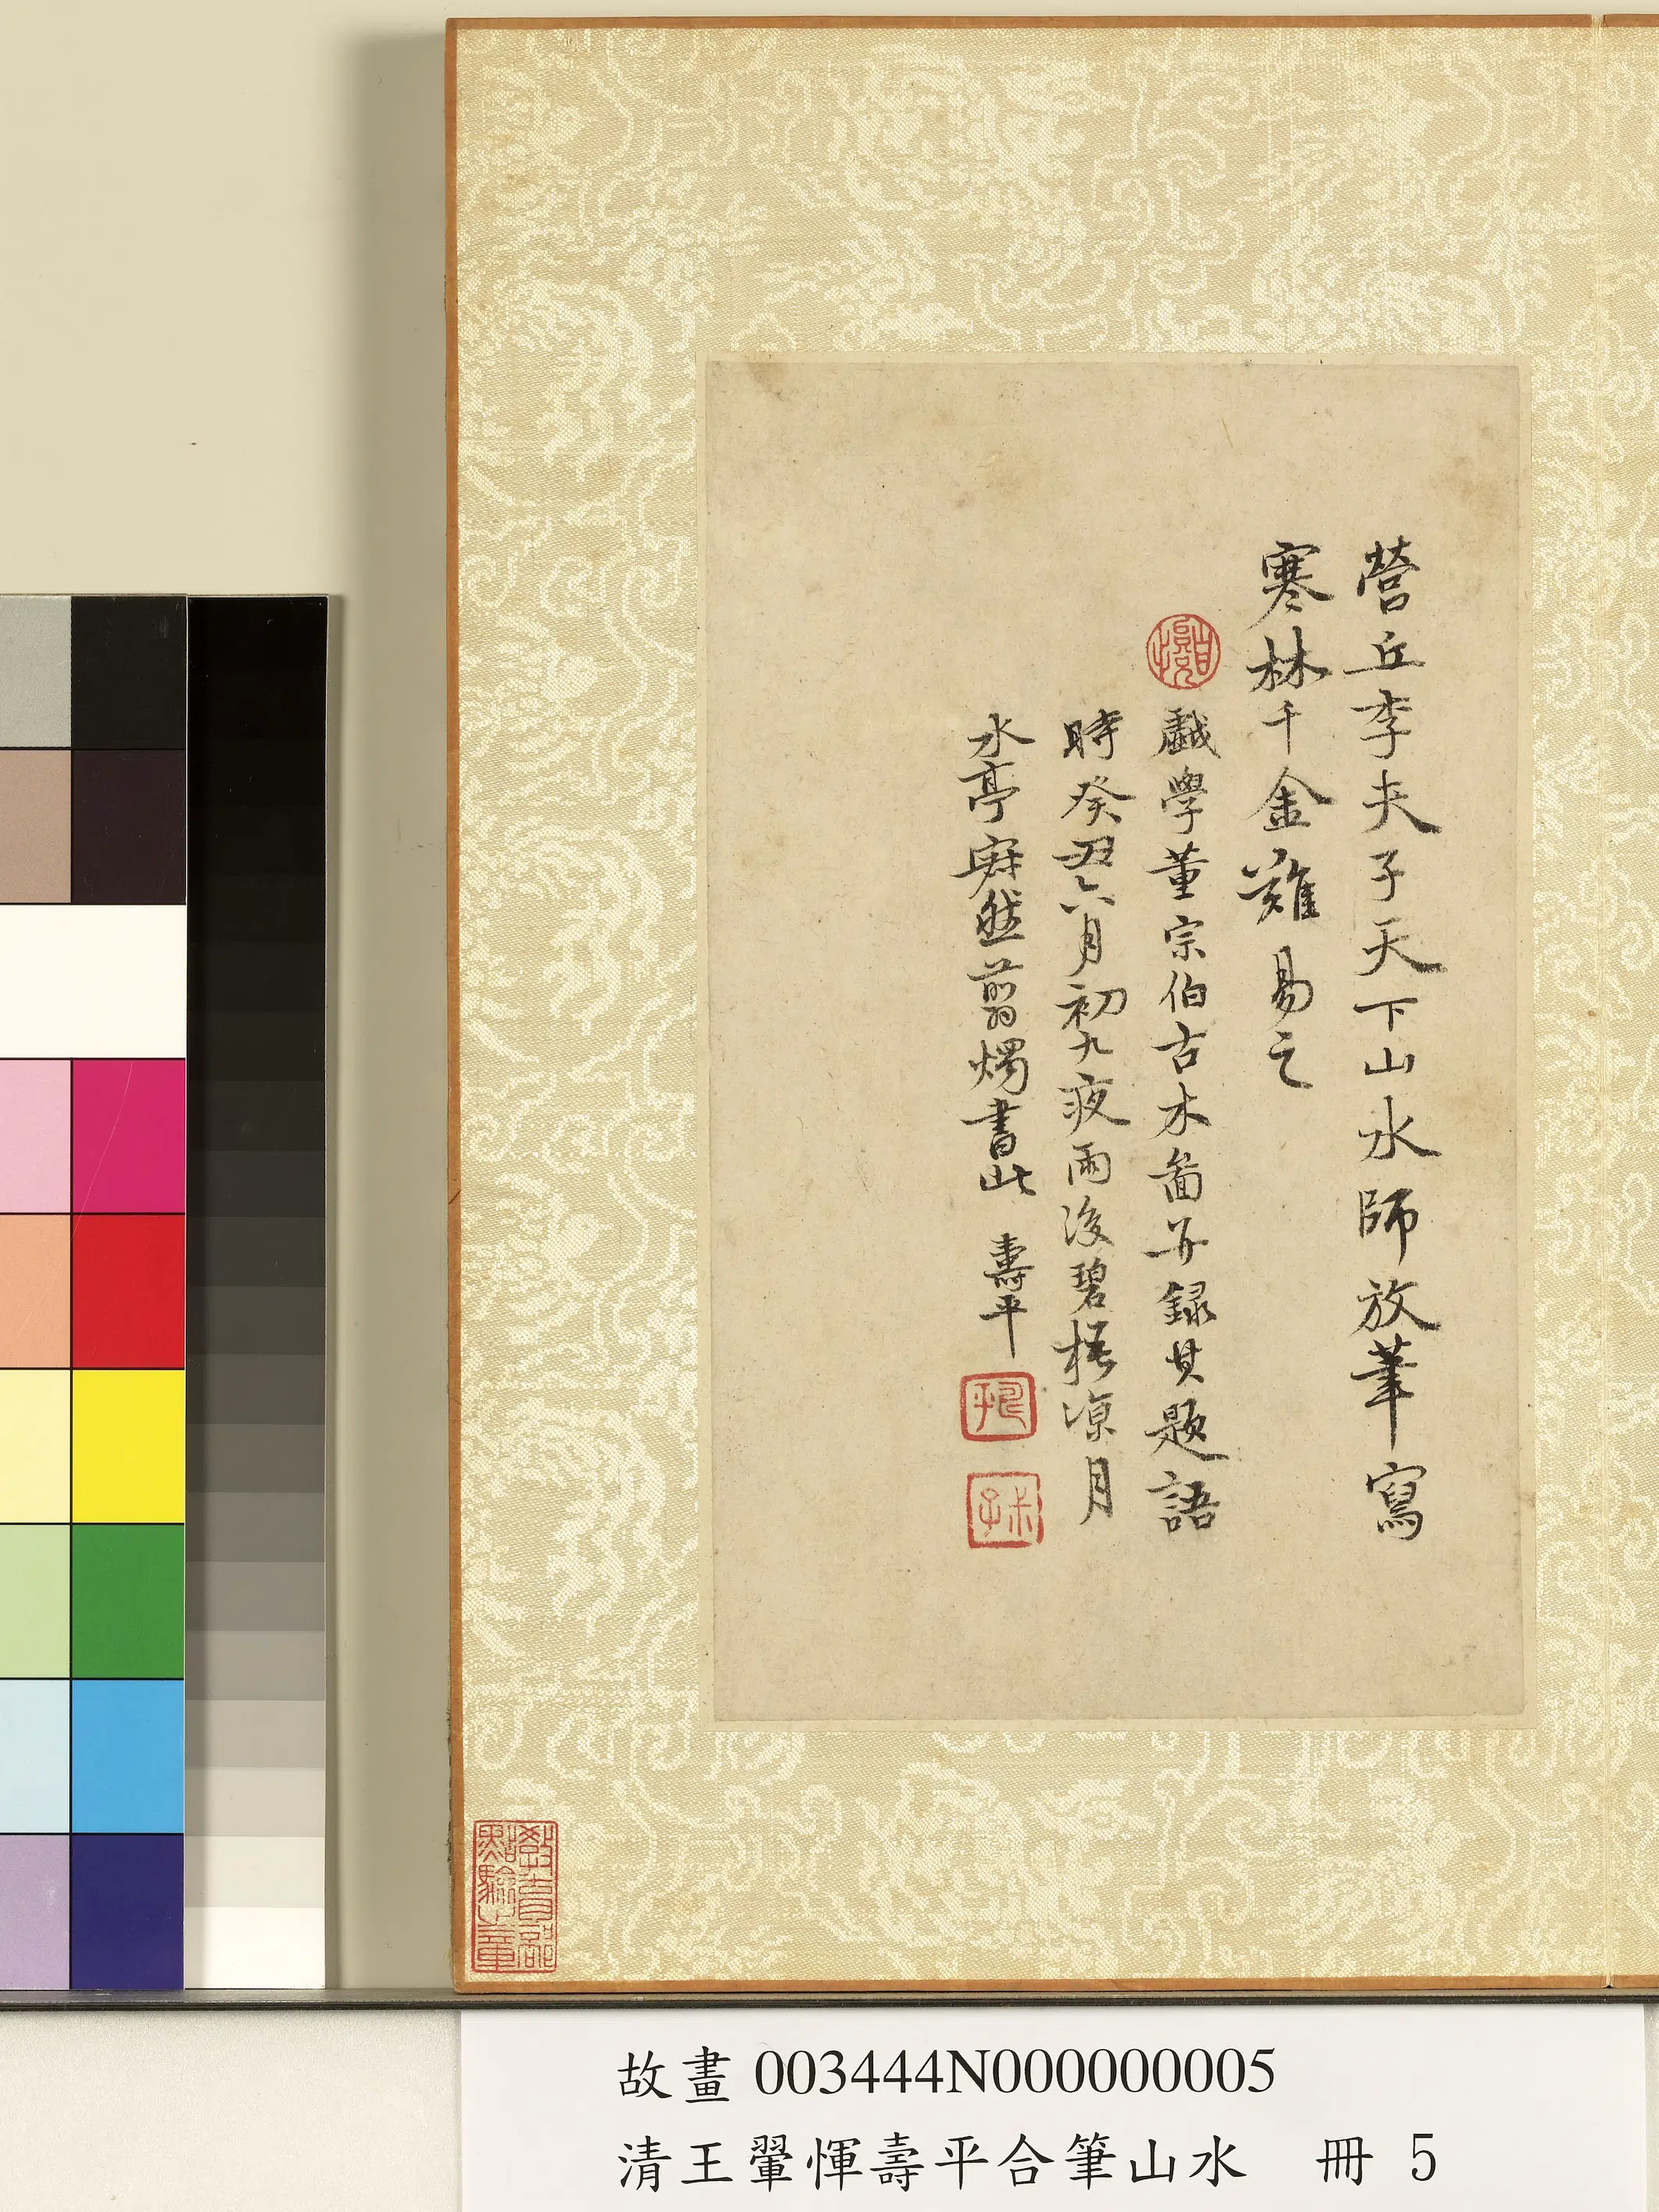 營丘李夫子天下山水師放筆寫
寒林千金難易之
戲學董宗伯古木啚并録其題語
時癸丑六月初九夜雨後碧梧涼月
水亭寂然翦燭書此 壽平
教育部
點驗之章
故畫 003444N000000005
清王翬惲壽平合筆山水 冊 5